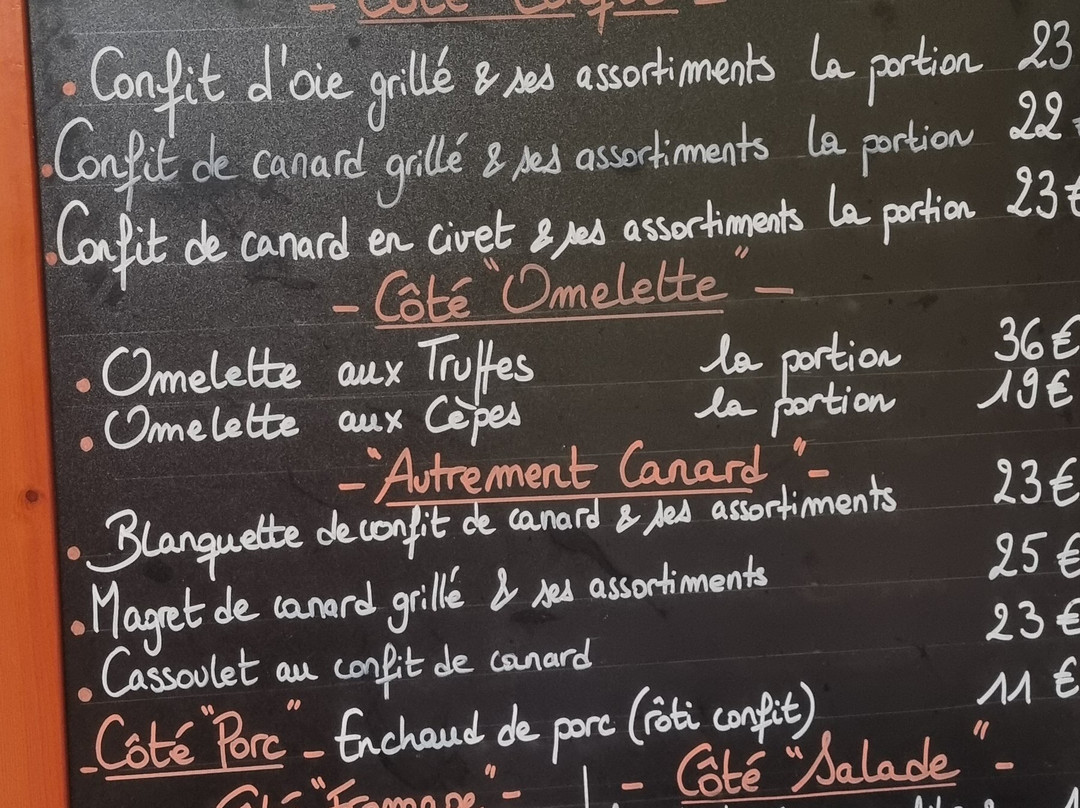 - Côté "Confit" -
• Confit d'oie grillé & ses assortiments la portion 23
• Confit de canard grillé & ses assortiments la portion 22
• Confit de canard en civet & ses assortiments la portion 23€
- Côté "Omelette" -
• Omelette aux Truffes la portion 36€
• Omelette aux Cèpes la portion 19€
- "Autrement Canard" -
• Blanquette de confit de canard & ses assortiments 23€
• Magret de canard grillé & ses assortiments 25€
• Cassoulet au confit de canard 23€
- Côté "Porc" - Enchaud de porc (rôti confit) 11€
- Côté "Salade" -
"Fromage" -